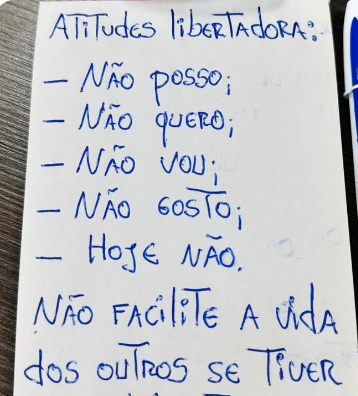 ATITUDES LIBERTADORA:
- NÃO POSSO;
- NÃO QUERO;
- NÃO VOU;
- NÃO GOSTO;
- HOJE NÃO.
NÃO FACILITE A VIDA
DOS OUTROS SE TIVER